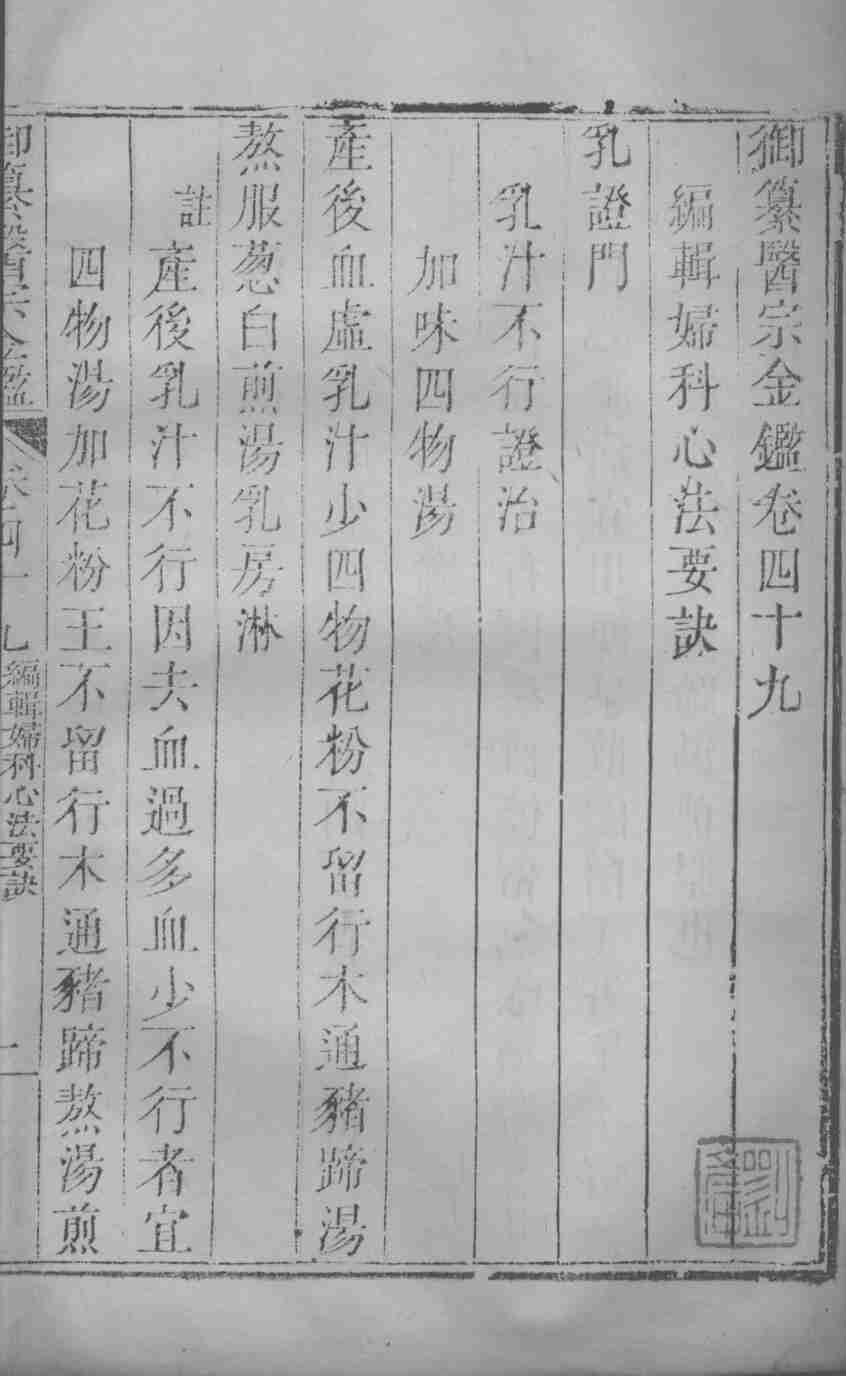 御纂醫宗金鑑卷四十九
編輯婦科心法要訣
乳證門
乳汁不行證治
加味四物湯
產後血虛乳汁少四物花粉不留行木通豬蹄湯
熬服葱白煎湯乳房淋
註產後乳汁不行因去血過多血少不行者宜
四物湯加花粉王不留行木通豬蹄熬湯煎
御纂醫宗金鑑
卷四十九 編輯婦科心法要訣
劉